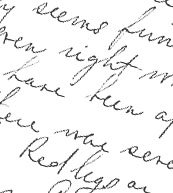 y seems fun
even right
have been a
there was seve
Red legs a